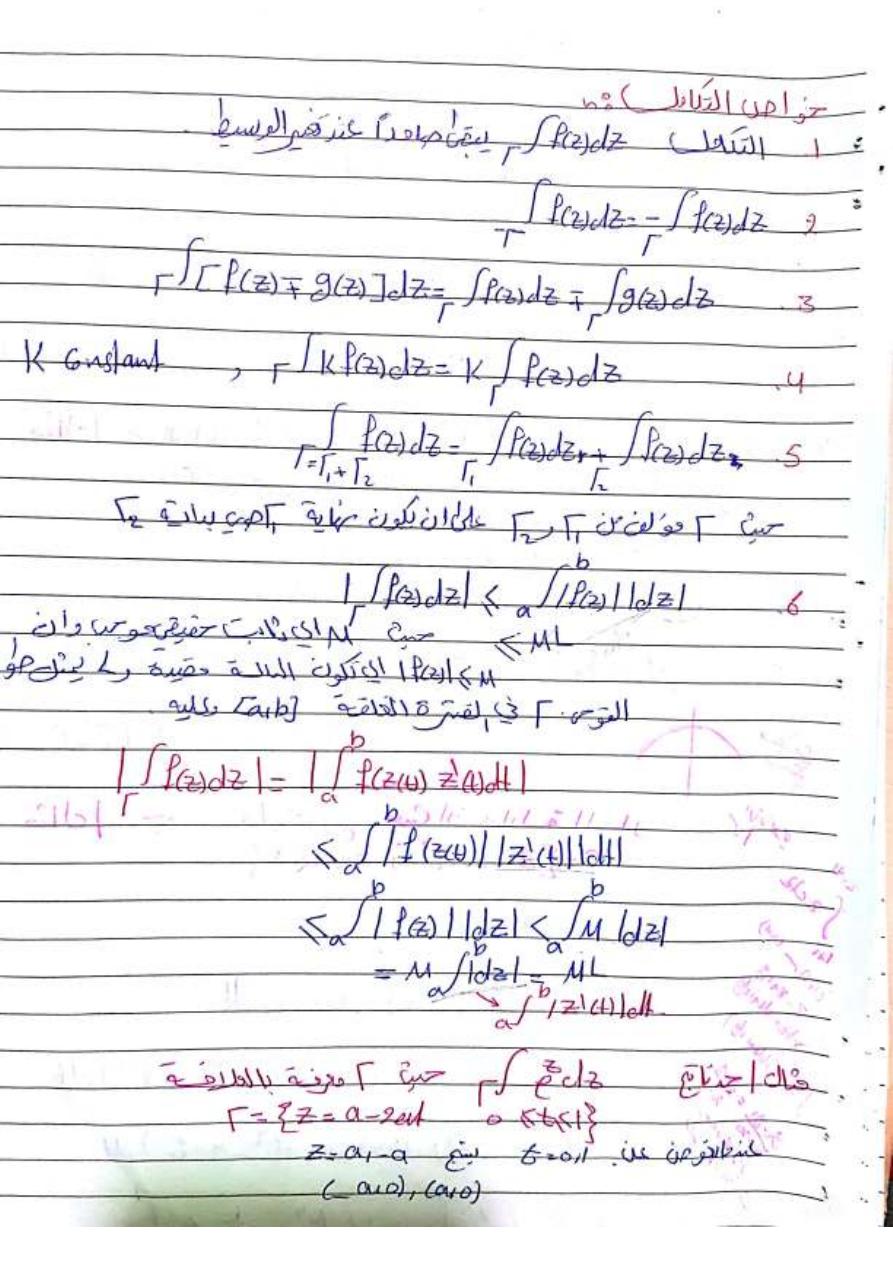 خواص التكامل :
1. التكامل Γ∫f(z)dz يبقى صامداً عند تغير الوسيط
2. -Γ∫f(z)dz = -Γ∫f(z)dz
3. Γ∫[f(z)∓g(z)]dz = Γ∫f(z)dz ∓ Γ∫g(z)dz
4. Γ∫Kf(z)dz = K Γ∫f(z)dz , K Constant
5. Γ=Γ₁+Γ₂∫f(z)dz = Γ₁∫f(z)dz + Γ₂∫f(z)dz
حيث Γ مؤلف من Γ₁ و Γ₂ على ان تكون نهاية Γ₁ هي بداية Γ₂
6. |Γ∫f(z)dz| ≤ a∫ᵇ|f(z)||dz|
≤ ML حيث M اي ثابت حقيقي موجب وان
|f(z)|≤M اي تكون الدالة مقيدة و L يمثل طول
القوس Γ في الفترة المغلقة [a,b] وعليه
|Γ∫f(z)dz| = |a∫ᵇ f(z(t)) z'(t)dt|
≤ a∫ᵇ|f(z(t))||z'(t)||dt|
≤ a∫ᵇ|f(z)||dz| < a∫ᵇM|dz|
= M a∫ᵇ|dz| = ML
a∫ᵇ|z'(t)|dt
مثال / جد ناتج Γ∫e^z dz حيث Γ معرفة بالعلاقة
Γ={z=a-2at 0≤t≤1}
عندما نعوض عن t=0,1 ينتج z=a,-a
(-a,0),(a,0)